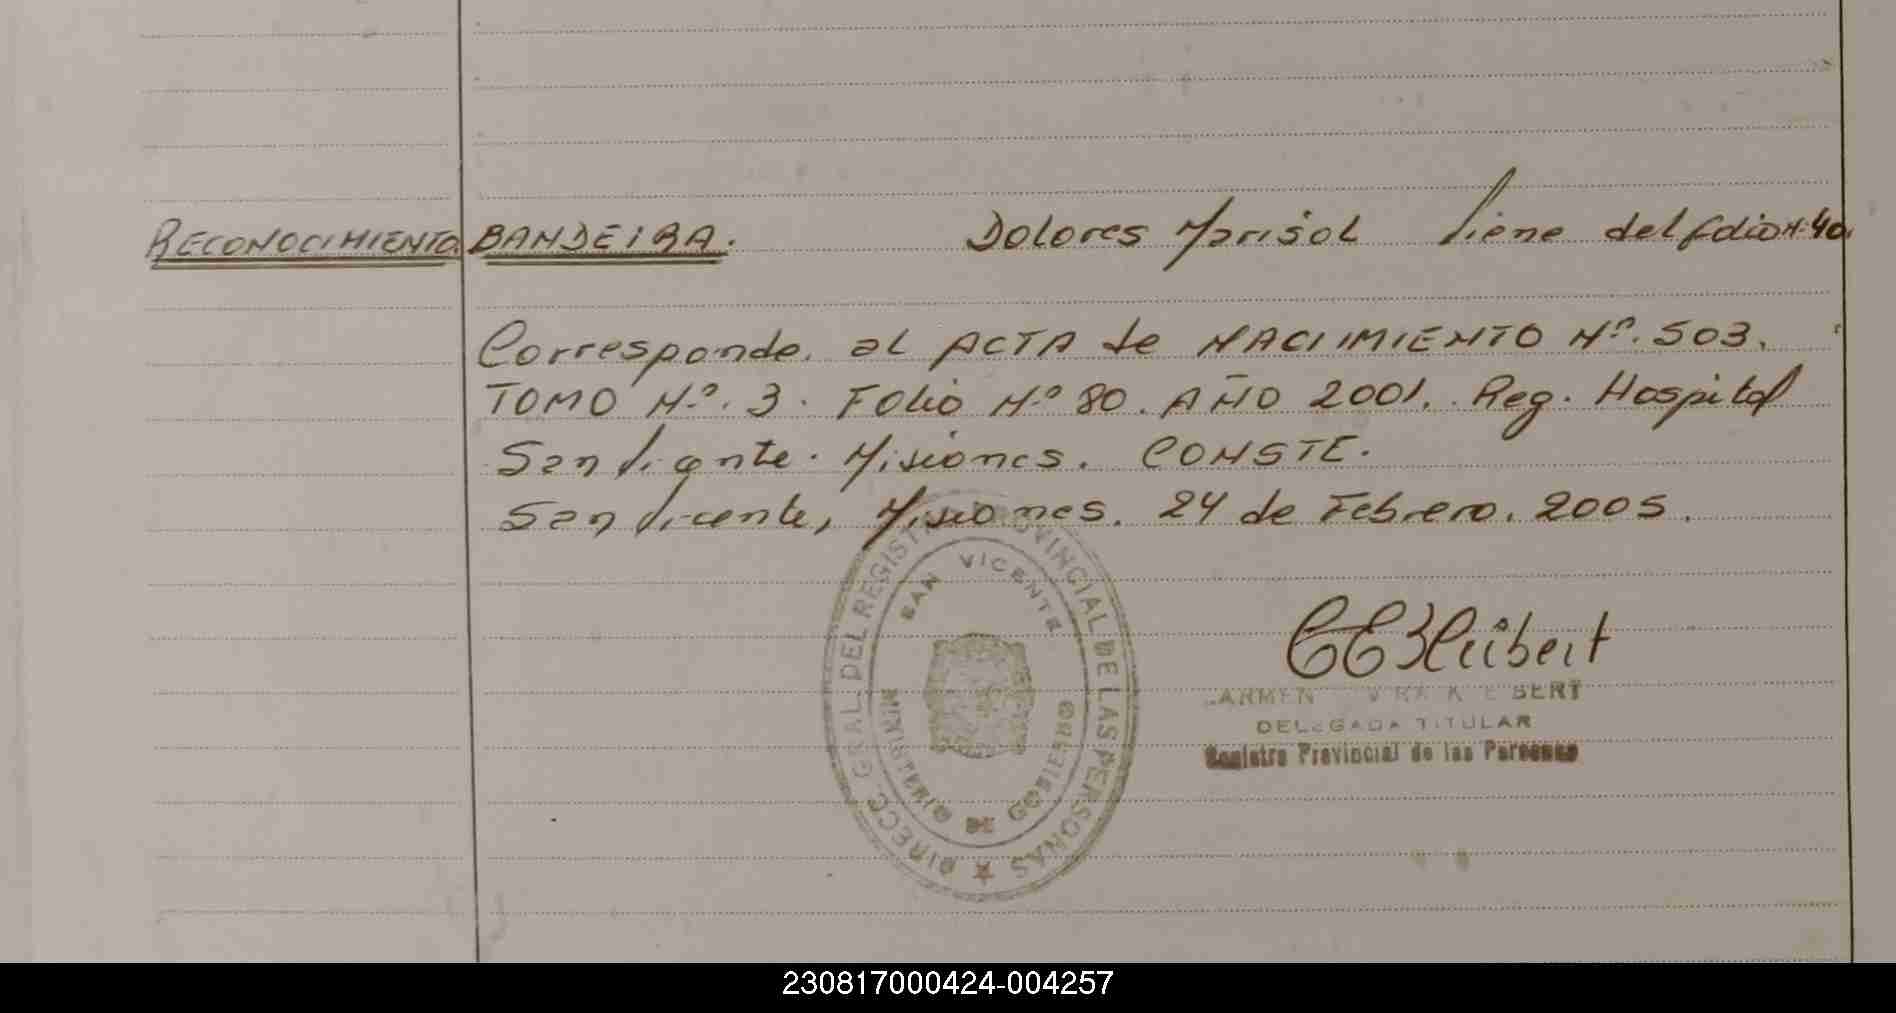 RECONOCIMIENTO. BANDEIRA. Dolores Marisol Viene del folio Nº 40.
Corresponde. al ACTA de NACIMIENTO Nº. 503.
TOMO Nº. 3. Folio Nº 80. AÑO 2001. Reg. Hospital
San Vicente. Misiones. CONSTE.
San Vicente, Misiones. 24 de Febrero. 2005.
DIRECC. GRAL. DEL REGISTRO PROVINCIAL DE LAS PERSONAS
SAN VICENTE
MINISTERIO DE GOBIERNO
DELEGADA TITULAR
Registro Provincial de las Personas
230817000424-004257